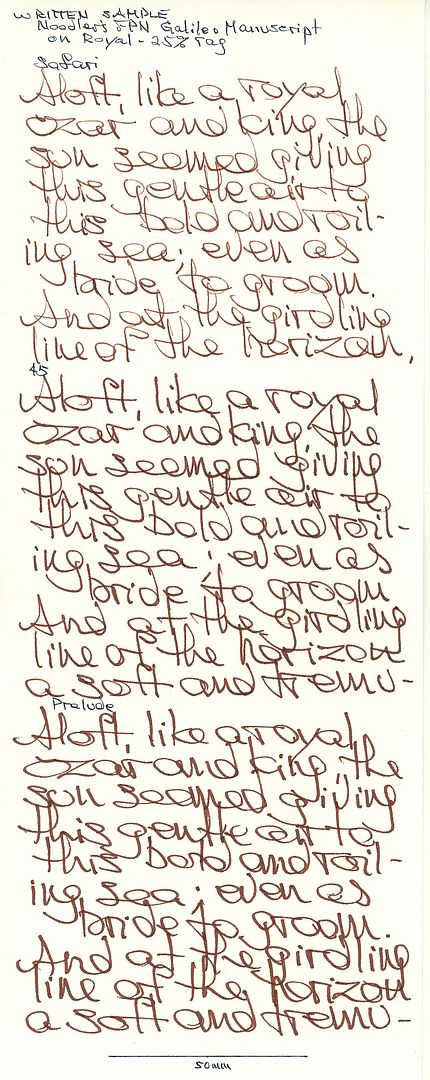 WRITTEN SAMPLE
Noodler's FPN Galileo Manuscript
on Royal - 25% rag
Safari
Aloft, like a royal
czar and king, the
sun seemed giving
this gentle air to
this bold and roil-
ing sea; even as
bride to groom.
And at the girdling
line of the horizon,
45
Aloft, like a royal
czar and king, the
sun seemed giving
this gentle air to
this bold and roil-
ing sea; even as
bride to groom
And at the girdling
line of the horizon
a soft and tremu-
Prelude
Aloft, like a royal
czar and king, the
sun seemed giving
this gentle air to
this bold and roil-
ing sea; even as
bride to groom.
And at the girdling
line of the horizon
a soft and tremu-
50mm